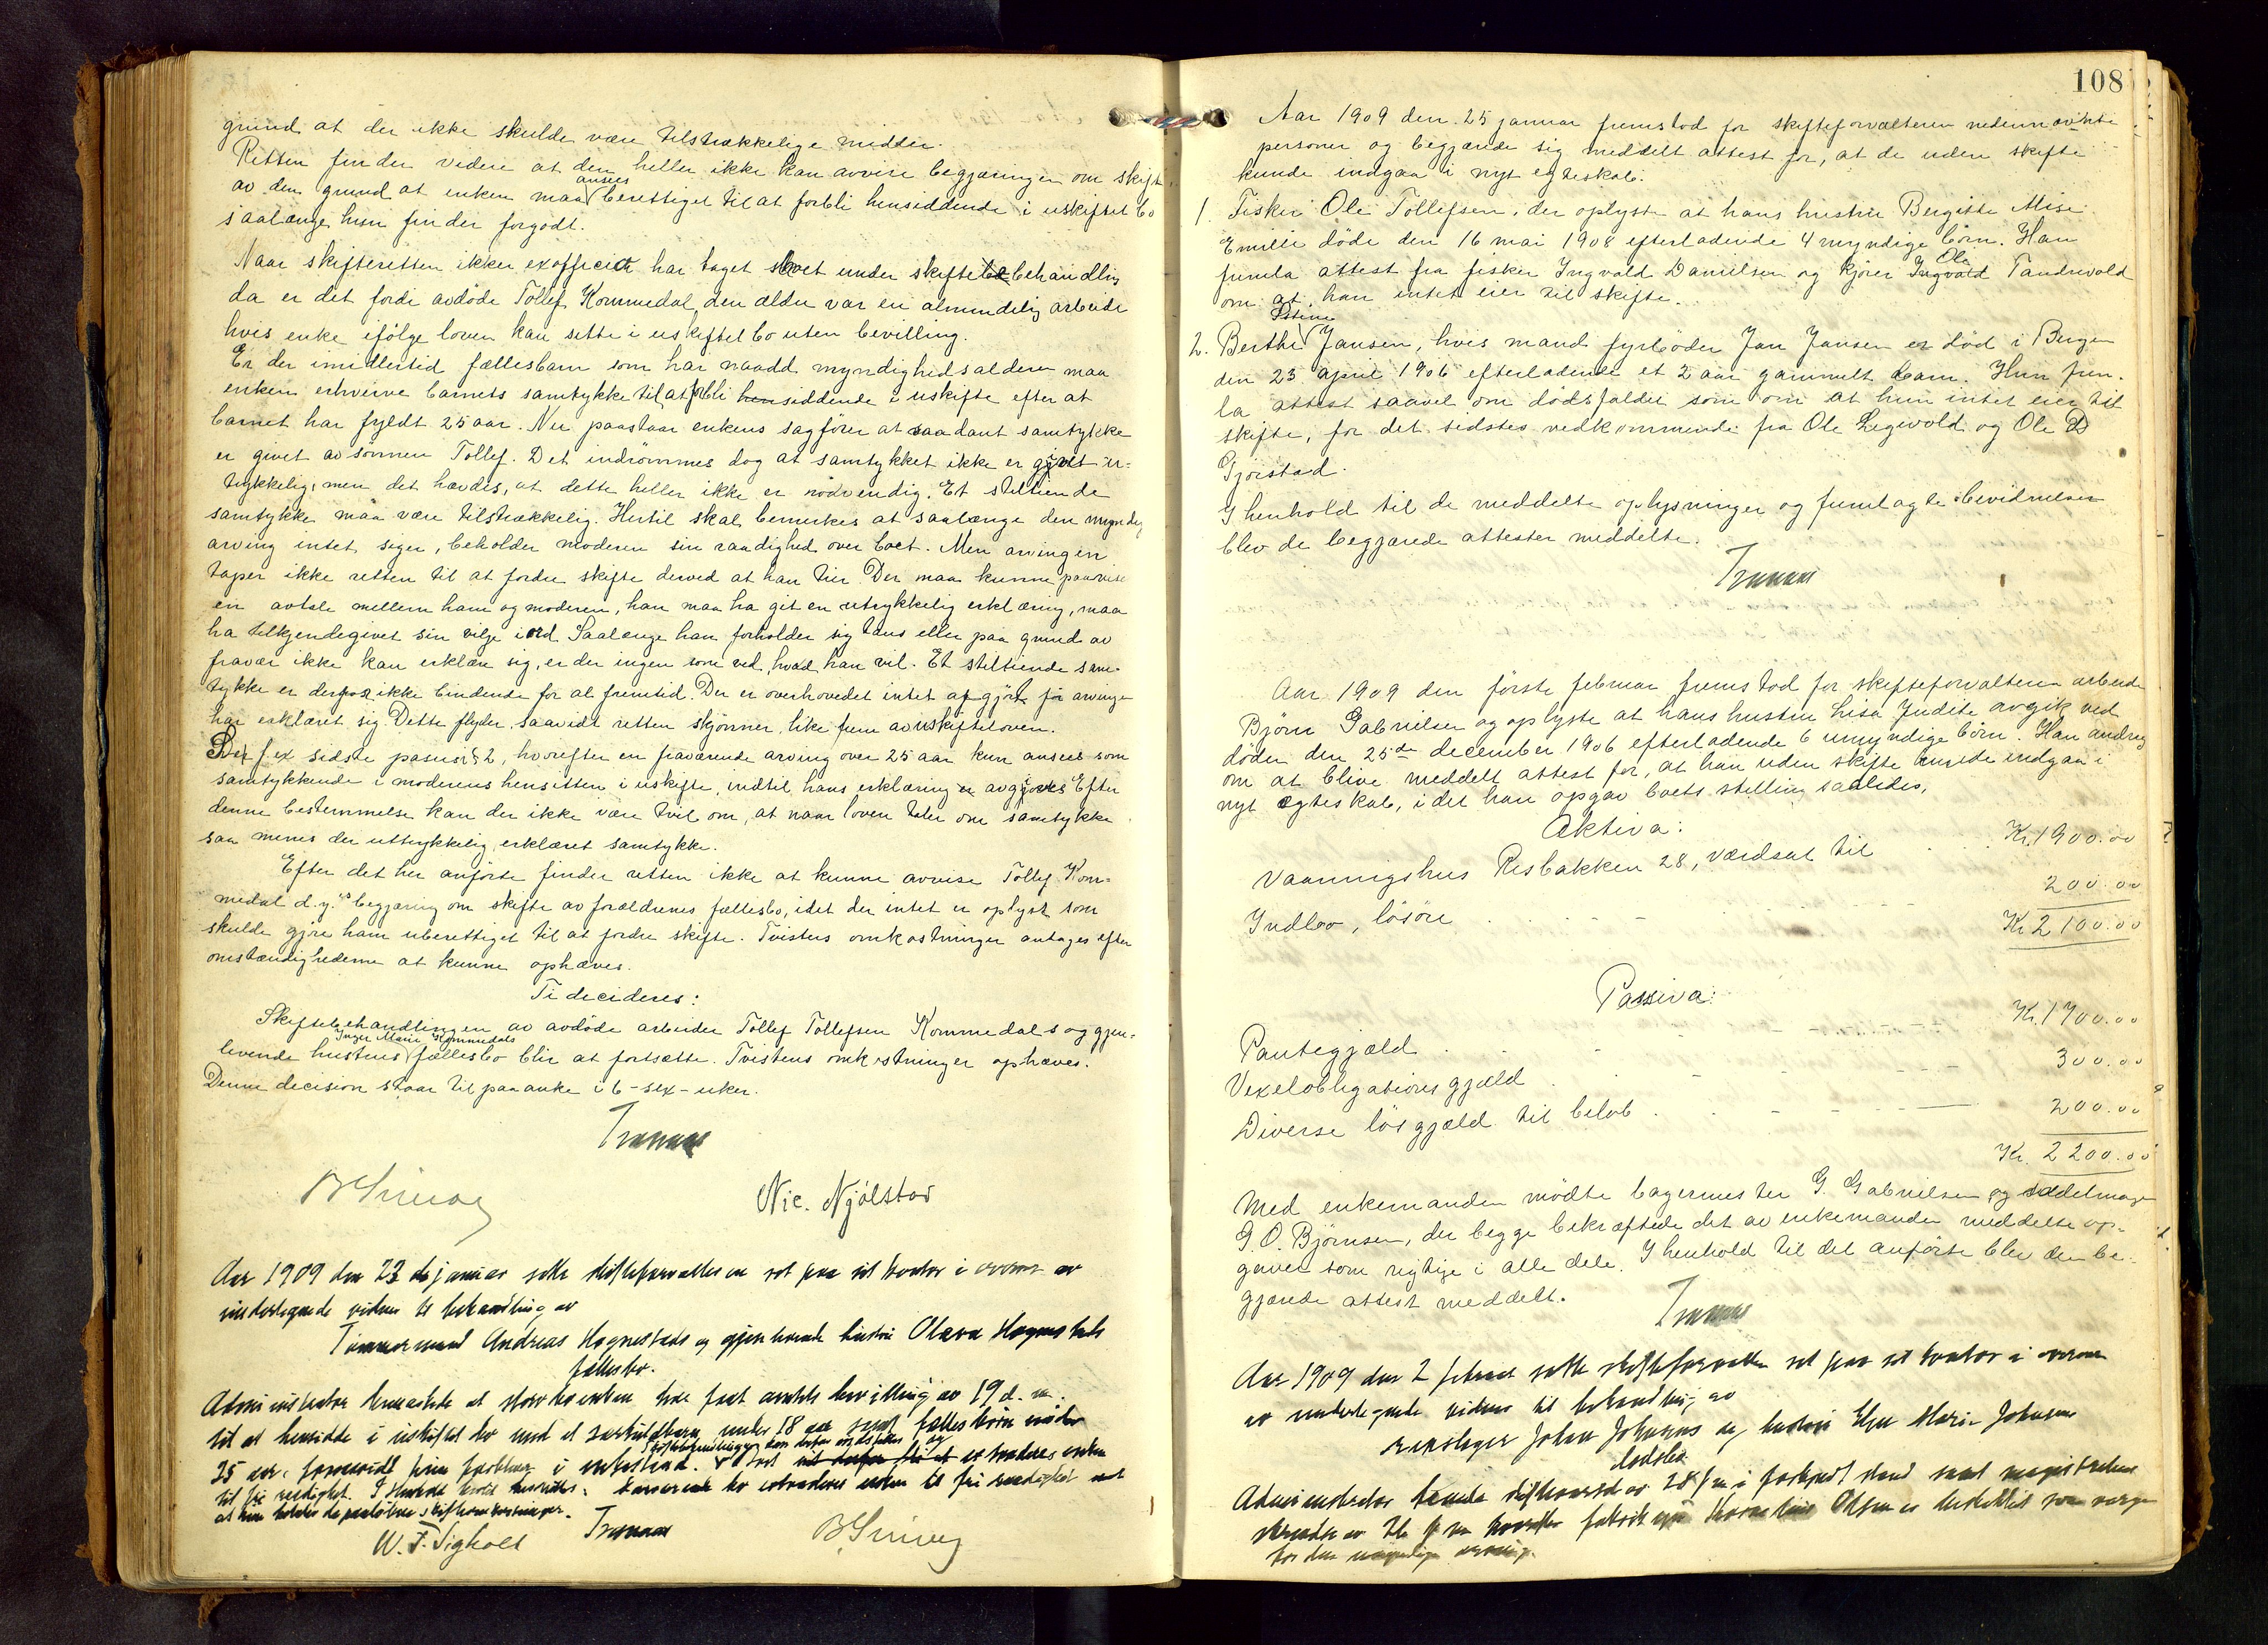 grund at der ikke skulde være tilstrækkelige midler.
Retten finder videre at den heller ikke kan avvise begjæringen om skifte
av den grund at enken maa ansees berettiget til at forbli hensiddende i uskiftet bo
saalænge hun finder forgodt.
Naar skifteretten ikke ex officio har taget boet under skiftebehandling
da er det fordi avdöde Tollef Kommedal den ældre var en almindelig arbeider
hvis enke ifölge loven kan sitte i uskiftet bo uten bevilling.
Er der imidlertid fællesbarn som har naadd myndighedsalderen maa
enken erhverve barnets samtykke til at forbli hensiddende i uskifte efter at
barnet har fyldt 25 aar. Nu paastaar enkens sagförer at saadant samtykke
er givet av sönnen Tollef. Det indrömmes dog at samtykket ikke er givet ut-
trykkelig, men det hævdes, at dette heller ikke er nödvendig. Et stiltiende
samtykke maa være tilstrækkelig. Hertil skal bemerkes at saalænge den myndig
arving intet siger, beholder moderen sin raadighed over boet. Men arvingen
taper ikke retten til at fordre skifte derved at han tier. Der maa kunne paavises
en avtale mellem ham og moderen, han maa ha git en uttrykkelig erklæring, maa
ha tilkjendegivet sin vilje i ord. Saalenge han forholder sig taus eller paa grund av
fravær ikke kan erklære sig, er der ingen som ved, hvad han vil. Et stiltiende sam-
tykke er derfor ikke bindende for al fremtid. Der er overhovedet intet afgjört för arvingen
har erklæret sig. Dette flyder, saavidt retten skjönner, like frem av uskifteloven.
Se f. ex sidste passus i § 2, hvorefter en fraværende arving over 25 aar kun ansees som
samtykkende i moderens hensitten i uskifte, indtil hans erklæring avgives. Efter
denne bestemmelse kan der ikke være tvil om, at naar loven taler om samtykke
saa menes der uttrykkelig erklæret samtykke.
Efter det her anförte finder retten ikke at kunne avvise Tollef Kom-
medal d.y.'s begjæring om skifte av forældrenes fællesbo, idet der intet er oplyst som
skulde gjöre ham uberettiget til at fordre skifte. Tvistens omkostninger antages efter
omstændighederne at kunne ophæves.
Ti decideres:
Skiftebehandlingen av avdöde arbeider Tollef Tollefsen Kommedals og gjen-
levende hustrus Inger Marie Kommedals fællesbo blir at fortsætte. Tvistens omkostninger ophæves.
Denne decision staar til paaanke i 6 - sex - uker.
Nic. Njölstad
Aar 1909 den 23 de januar satte skifteforvalteren ret paa sit kontor i overvær av
undertegnede vidner til behandling av
Tömmermand Andreas Hognestads og gjenlevende hustru Olava Hognestads
fællesbo.
Administrator bemerkede at enken har faat amtets bevilling av 19 d. m.
til at hensidde i uskiftet bo med et særkuldbarn under 18 aar samt fælles börn under
25 aar, forsaavidt hun forbliver i enkestand.
til fri raadighet.
W. F. Sigholt
108
Aar 1909 den 25 januar fremstod for skifteforvalteren nedennævnte
personer og begjærede sig meddelt attest for, at de uden skifte
kunde indgaa i nyt egteskab.
1. Fisker Ole Tollefsen, der oplyste at hans hustru Bergitte Elise
Emilie döde den 16 mai 1908 efterladende 4 myndige börn. Han
fremla attest fra fisker Ingvald Danielsen og kjörer Ole Tandrevold
om at han intet eier til skifte.
2. Berthe Stine Jansen, hvis mand fyrböder Jan Jansen er död i Bergen
den 23 april 1906 efterladende et 2 aar gammelt barn. Hun frem-
la attest saavel om dödsfaldet som om at hun intet eier til
skifte, for det sidstes vedkommende fra Ole Legevold og Ole D
Gjörstad.
I henhold til de meddelte oplysninger og fremlagte bevidnelser
blev de begjærede attester meddelte.
Aar 1909 den förste februar fremstod for skifteforvalteren arbeider
Björn Gabrielsen og oplyste at hans hustru Lisa Judite avgik ved
döden den 25de december 1906 efterladende 6 umyndige börn. Han androg
om at blive meddelt attest for, at han uden skifte kunde indgaa i
nyt egteskab, idet han opgav boets stilling saaledes,
Aktiva:
Vaaningshus Risbakken 28, værdsat til Kr. 1900.00
Indbo, lösöre 200.00
Kr 2100.00
Passiva:
Pantegjæld Kr. 1700.00
Vexelobligationsgjæld 300.00
Diverse lösgjæld til belöb 200.00
Kr. 2200.00
Med enkemanden mödte bagermester G. Gabrielsen og sadelmager
G. O. Björnsen, der begge bekræftede det av enkemanden meddelte op-
gaver som rigtige i alle dele. I henhold til det anförte blev den be-
gjærede attest meddelt.
Aar 1909 den 2 februar satte skifteforvalteren ret paa sit kontor i overvær
av undertegnede vidner til behandling av
repslager Johan Johnsens og hustru Marie Johnsens
dödsbo